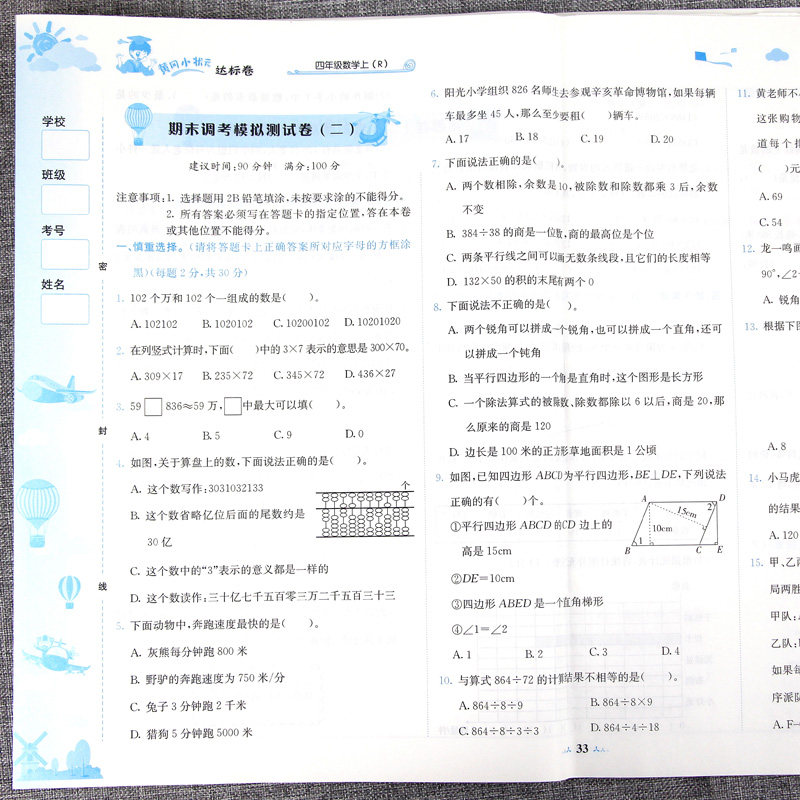 黄冈小状元 达标卷
四年级数学上(R)
学校
班级
考号
姓名
密
封
线
期末调考模拟测试卷(二)
建议时间:90分钟 满分:100分
注意事项:1. 选择题用2B铅笔填涂,未按要求涂的不能得分。
2. 所有答案必须写在答题卡的指定位置,答在本卷
或其他位置不能得分。
一、慎重选择。(请将答题卡上正确答案所对应字母的方框涂
黑)(每题2分,共30分)
1. 102个万和102个一组成的数是( )。
A. 102102 B. 1020102 C. 10200102 D. 10201020
2. 在列竖式计算时,下面( )中的3×7表示的意思是300×70。
A. 309×17 B. 235×72 C. 345×72 D. 436×27
3. 59□836≈59万,□中最大可以填( )。
A. 4 B. 5 C. 9 D. 0
4. 如图,关于算盘上的数,下面说法正确的是( )。
A. 这个数写作:3031032133
个
B. 这个数省略亿位后面的尾数约是
30亿
C. 这个数中的“3”表示的意义都是一样的
D. 这个数读作:三十亿七千五百零三万二千五百三十三
5. 下面动物中,奔跑速度最快的是( )。
A. 灰熊每分钟跑800米
B. 野驴的奔跑速度为750米/分
C. 兔子3分钟跑2千米
D. 猎狗5分钟跑5000米
6. 阳光小学组织826名师生去参观辛亥革命博物馆,如果每辆
车最多坐45人,那么至少要租( )辆车。
A. 17 B. 18 C. 19 D. 20
7. 下面说法正确的是( )。
A. 两个数相除,余数是10,被除数和除数都乘3后,余数
不变
B. 384÷38的商是一位数,商的最高位是个位
C. 两条平行线之间可以画无数条线段,且它们的长度相等
D. 132×50的积的末尾有两个0
8. 下面说法不正确的是( )。
A. 两个锐角可以拼成一个锐角,也可以拼成一个直角,还可
以拼成一个钝角
B. 当平行四边形的一个角是直角时,这个图形是长方形
C. 一个除法算式的被除数、除数都除以6以后,商是20,那
么原来的商是120
D. 边长是100米的正方形草地面积是1公顷
9. 如图,已知四边形ABCD为平行四边形,BE⊥DE,下列说法
正确的有( )个。
①平行四边形ABCD的CD边上的
高是15cm
②DE=10cm
③四边形ABED是一个直角梯形
④∠1=∠2
A D 2 15cm 10cm 1 B C E
A. 1 B. 2 C. 3 D. 4
10. 与算式864÷72的计算结果不相等的是( )。
A. 864÷8÷9 B. 864÷8×9
C. 864÷8÷3÷3 D. 864÷4÷18
33
11. 黄老师不
这张购物
道每个排
( )元
A. 69
C. 54
12. 龙一鸣画
90°,∠2
A. 锐角
13. 根据下图
A. 8
14. 小马虎
的结果
A. 120
15. 甲、乙两
局两胜
甲队:
乙队:
如果每
序派队
A. F